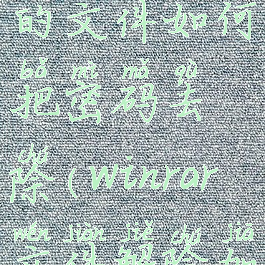 的文件如何
bǎ mì mǎ qù
把密码去
chú
除(winrar
wén jiàn jiě chú jiā
文件解除加